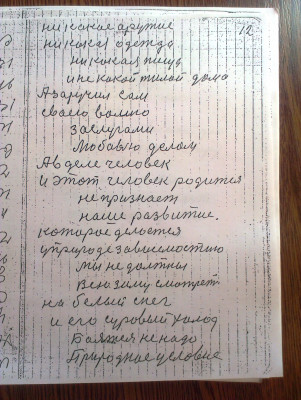 12
никакое оружие
никакая одежда
никакая пищь
и не какой жилой дома
А заручил сам
своею волию
заслугами
Любовью делом
А в деле человек
и этот человек родится
не признает
наше развитие.
которое делается
у природе зависимостию
мы не должны
Всю зиму смотреть
на белый снег
и его суровый холод
Баяжся не надо
Природное условие